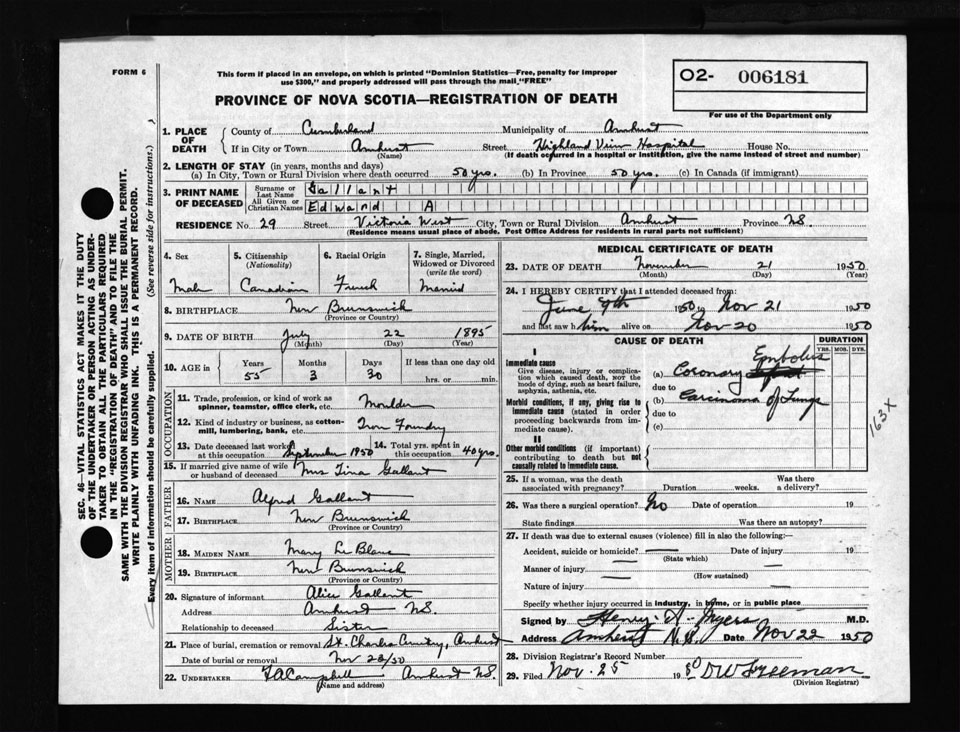 FORM 6
This form if placed in an envelope, on which is printed "Dominion Statistics—Free, penalty for improper
use $300," and properly addressed will pass through the mail, "FREE"
O2- 006181
For use of the Department only
PROVINCE OF NOVA SCOTIA—REGISTRATION OF DEATH
1. PLACE OF DEATH
County of Cumberland Municipality of Amherst
If in City or Town Amherst Street Highland View Hospital House No.
(Name) (If death occurred in a hospital or institution, give the name instead of street and number)
2. LENGTH OF STAY (in years, months and days)
(a) In City, Town or Rural Division where death occurred 50 yrs. (b) In Province 50 yrs. (c) In Canada (if immigrant)
3. PRINT NAME OF DECEASED
Surname or Last Name Gallant
All Given or Christian Names Edward A
RESIDENCE No. 29 Street Victoria West City, Town or Rural Division Amherst Province N.S.
(Residence means usual place of abode. Post Office Address for residents in rural parts not sufficient)
4. Sex 5. Citizenship 6. Racial Origin 7. Single, Married,
(Nationality) Widowed or Divorced
(write the word)
Male Canadian French Married
8. BIRTHPLACE New Brunswick
(Province or Country)
9. DATE OF BIRTH July 22 1895
(Month) (Day) (Year)
10. AGE in Years Months Days If less than one day old
55 3 30 hrs. or min.
OCCUPATION
11. Trade, profession, or kind of work as
spinner, teamster, office clerk, etc. Moulder
12. Kind of industry or business, as cotton-
mill, lumbering, bank, etc. Iron Foundry
13. Date deceased last worked
at this occupation September 1950
14. Total yrs. spent in
this occupation 40 yrs.
15. If married give name of wife
or husband of deceased Mrs Tina Gallant
FATHER
16. NAME Alfred Gallant
17. BIRTHPLACE New Brunswick
(Province or Country)
MOTHER
18. MAIDEN NAME Mary LeBlanc
19. BIRTHPLACE New Brunswick
(Province or Country)
20. Signature of informant Alice Gallant
Address Amherst N.S.
Relationship to deceased Sister
21. Place of burial, cremation or removal St. Charles Cemetry, Amherst
Date of burial or removal Nov 23/50
22. UNDERTAKER F.A. Campbell Amherst N.S.
(Name and address)
MEDICAL CERTIFICATE OF DEATH
23. DATE OF DEATH November 21 1950
(Month) (Day) (Year)
24. I HEREBY CERTIFY that I attended deceased from:
June 9th 1950 to Nov 21 1950
and last saw him alive on Nov 20 1950
CAUSE OF DEATH
DURATION
YRS. MOS. DYS.
I
Immediate cause
Give disease, injury or complica-
tion which caused death, NOT the
mode of dying, such as heart failure,
asphyxia, asthenia, etc.
Embolus
(a) Coronary
due to
Morbid conditions, if any, giving rise to
immediate cause (stated in order
proceeding backwards from im-
mediate cause).
(b) Carcinoma of Lungs
due to
(c)
II
Other morbid conditions (if important)
contributing to death but not
causally related to immediate cause.
163X
25. If a woman, was the death
associated with pregnancy? Duration weeks. Was there
a delivery?
26. Was there a surgical operation? No Date of operation 19
State findings Was there an autopsy?
27. If death was due to external causes (violence) fill in also the following:—
Accident, suicide or homicide? Date of injury 19
(State which)
Manner of injury
(How sustained)
Nature of injury
Specify whether injury occurred in industry, in home, or in public place
Signed by Henry A. Myers M.D.
Address Amherst N.S. Date Nov 22 1950
28. Division Registrar's Record Number
29. Filed Nov. 25 1950 DW Freeman
(Division Registrar)
SEC. 46—VITAL STATISTICS ACT MAKES IT THE DUTY
OF THE UNDERTAKER OR PERSON ACTING AS UNDER-
TAKER TO OBTAIN ALL THE PARTICULARS REQUIRED
IN THE "REGISTRATION OF DEATH" AND TO FILE THE
SAME WITH THE DIVISION REGISTRAR WHO SHALL ISSUE THE BURIAL PERMIT.
WRITE PLAINLY WITH UNFADING INK. THIS IS A PERMANENT RECORD.
Every item of information should be carefully supplied. (See reverse side for instructions.)